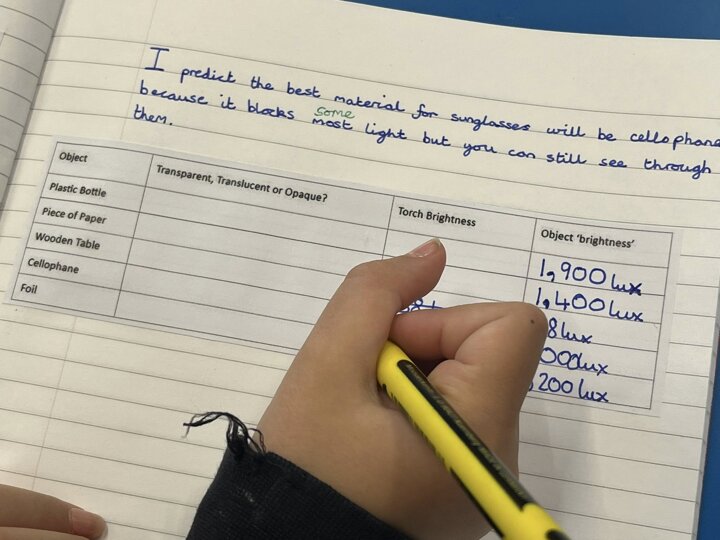 I predict the best material for sunglasses will be cellophane
because it blocks some most light but you can still see through
them.
Object Transparent, Translucent or Opaque? Torch Brightness Object 'brightness'
Plastic Bottle 1,900 lux
Piece of Paper 1,400 lux
Wooden Table 8 lux
Cellophane 000 lux
Foil 200 lux